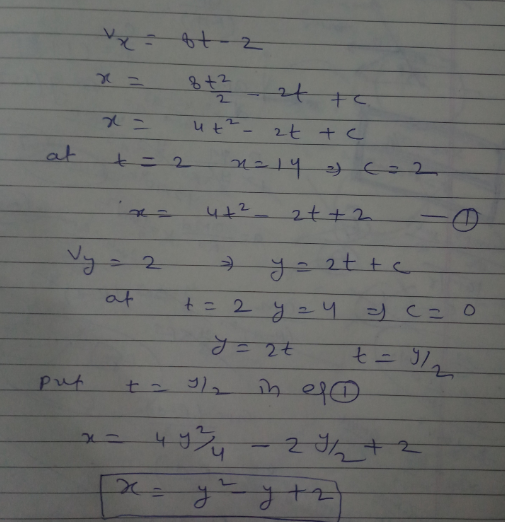 Vx = 8t - 2
x = 8t²/2 - 2t + c
x = 4t² - 2t + c
at t = 2 x = 14 ⇒ c = 2
x = 4t² - 2t + 2 — ①
Vy = 2 ⇒ y = 2t + c
at t = 2 y = 4 ⇒ c = 0
y = 2t t = y/2
put t = y/2 in eq ①
x = 4 y²/4 - 2 y/2 + 2
x = y² - y + 2